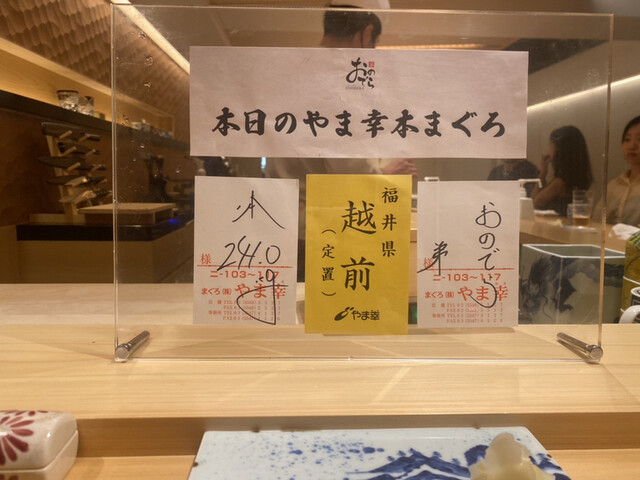 おのでら
本日のやま幸本まぐろ
本
様
241.0
ニ-103~117
まぐろ(株)やま幸
福井県
越前
(定置)
やま幸
おのでら
弟
様
ニ-103~117
まぐろ(株)やま幸